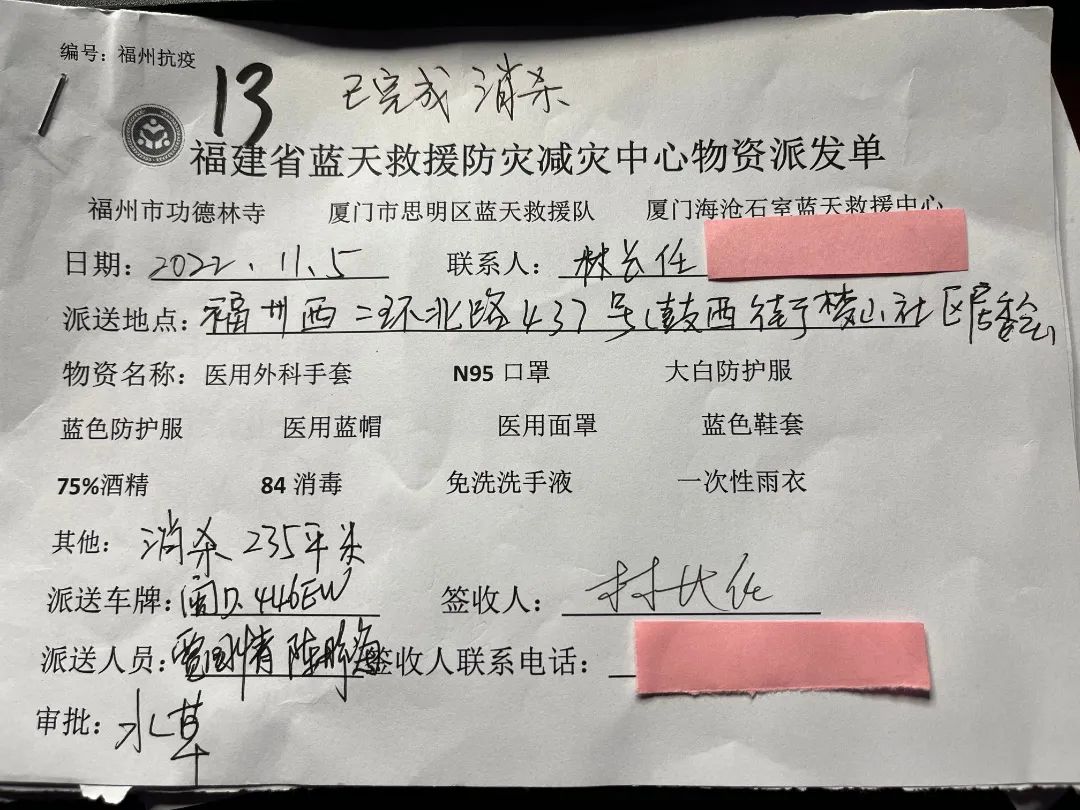 编号：福州抗疫
13 已完成消杀
福建省蓝天救援防灾减灾中心物资派发单
福州市功德林寺 厦门市思明区蓝天救援队 厦门海沧石室蓝天救援中心
日期：2022.11.5 联系人：林长任
派送地点：福州西二环北路437号(鼓西街 社区居委会)
物资名称：医用外科手套 N95 口罩 大白防护服
蓝色防护服 医用蓝帽 医用面罩 蓝色鞋套
75%酒精 84 消毒 免洗洗手液 一次性雨衣
其他：消杀 235平米
派送车牌：闽D.446EW 签收人：林长任
派送人员： 签收人联系电话：
审批：水草